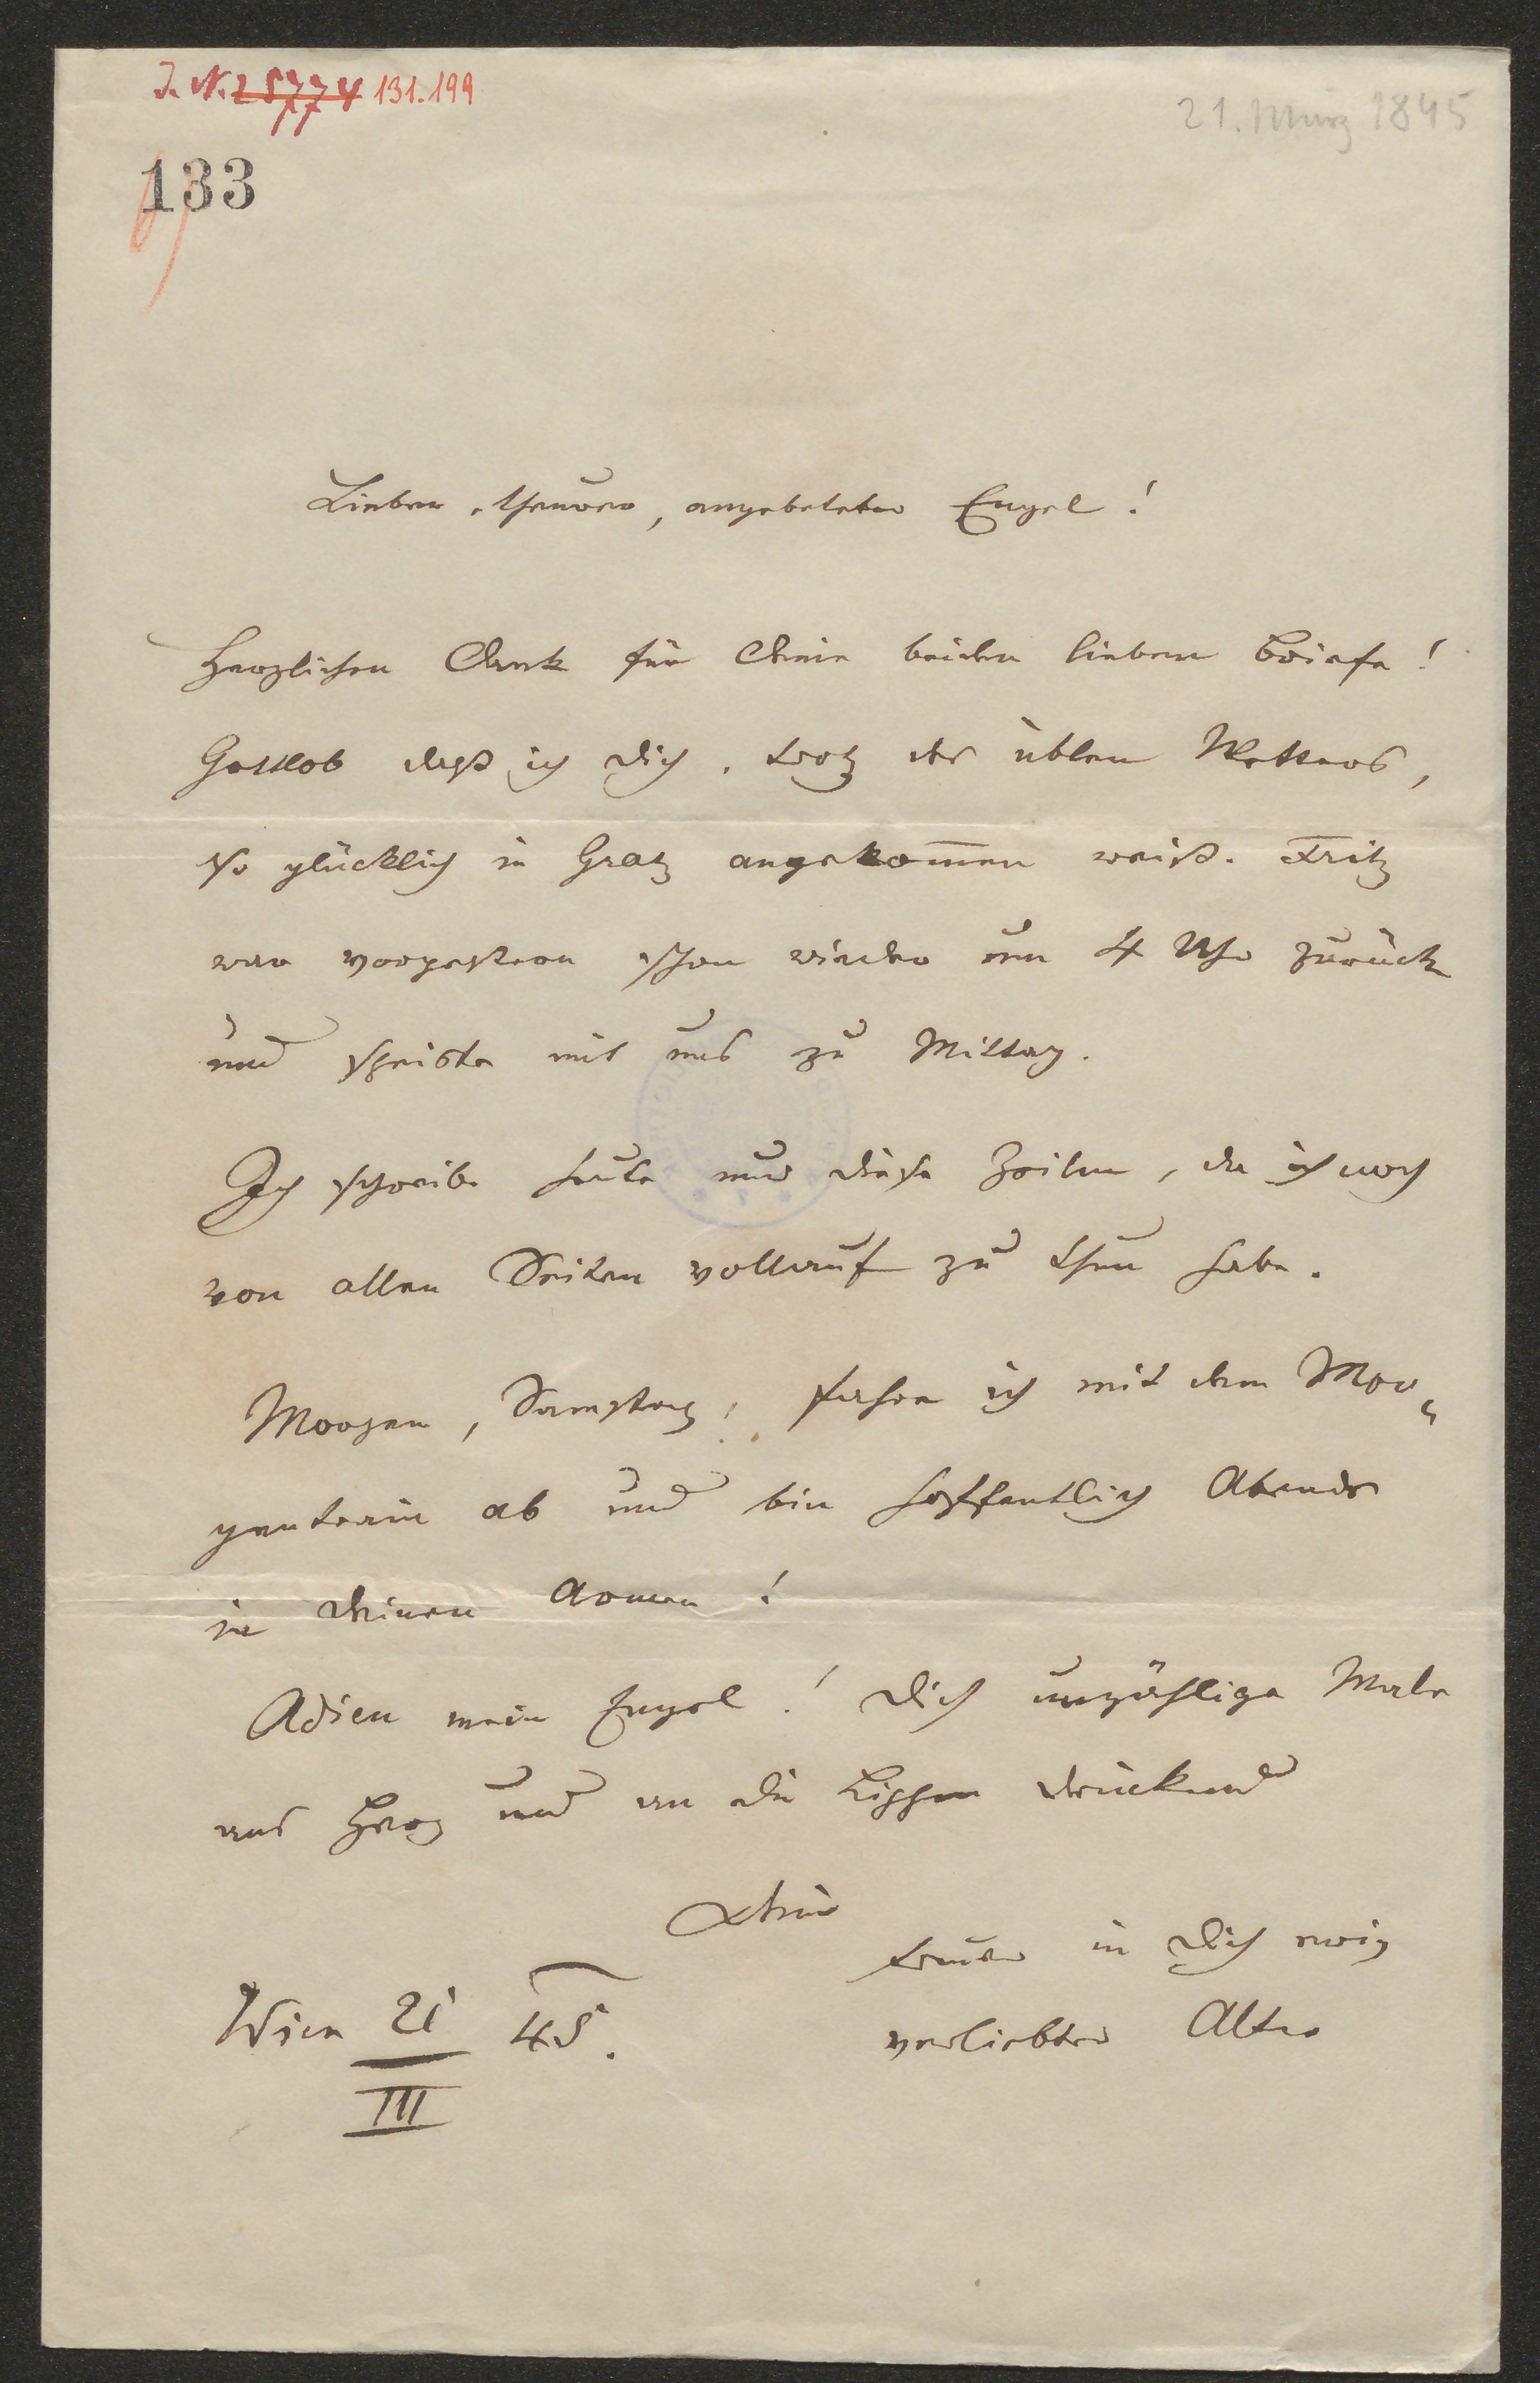 J. N. 25774 131.199
21. März 1845
133
Lieber, theurer, angebeteter Engel!
Herzlichen Dank für Deine beiden lieben Briefe!
Gottlob daß ich Dich, trotz des üblen Wetters,
so glücklich in Graz angekom̅en weiß. Fritz
war vorgestern schon wieder um 4 Uhr zurück
und speiste mit uns zu Mittag.
Ich schreibe heute nur diese Zeilen, da ich noch
von allen Seiten vollauf zu thun habe.
Morgen, Samstag, fahre ich mit dem Mor„
gentrain ab und bin hoffentlich Abends
in Deinen Armen!
Adieu mein Engel! Dich unzählige Male
ans Herz und an die Lippen drückend
Dein
treuer in Dich ewig
verliebter Alter
Wien 21/III 45.